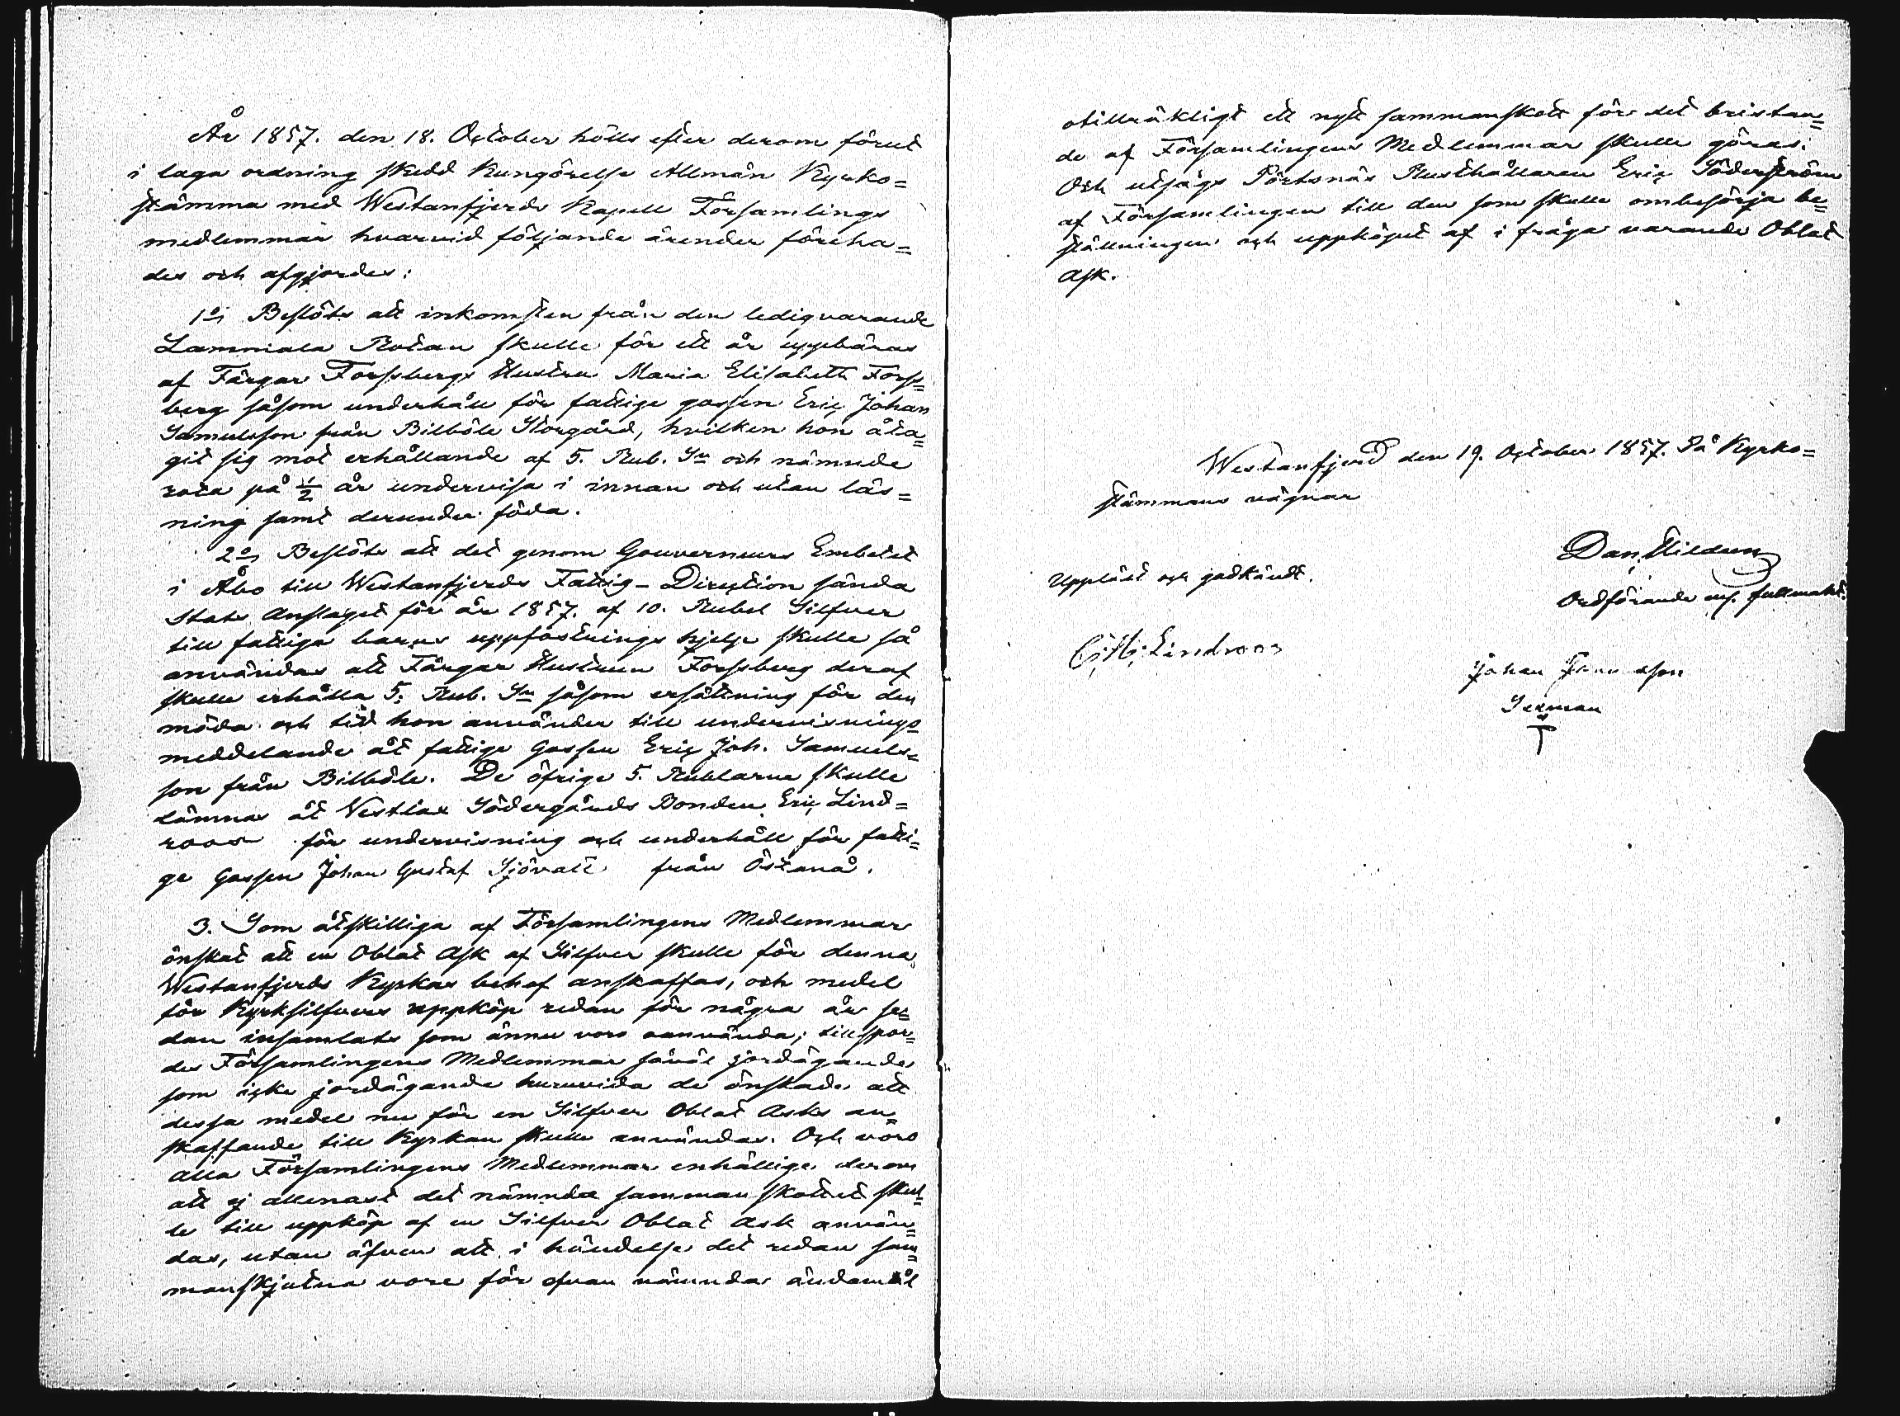 År 1857. den 18. October hölls efter derom förut
i laga ordning skedd Kungörelse Allmän Kyrko=
stämma med Westanfjerds Kapell Församlings
medlemmar hvarvid följande ärender föreha=
des och afgjordes:
1o, Beslöts att inkomsten från den ledigvarande
Lammala Rotan skulle för ett år uppbäras
af Färgar Forssbergs Hustru Maria Elisabeth Forss=
berg såsom underhåll för fattige gossen Eric Johan
Samuelsson från Bilböle Storgård, hvilken hon åta=
git sig mot erhållande af 5. Rub. Sr och nämnde
rota på 1/2 år undervisa i innan och utan läs=
ning samt derunder föda.
2o, Beslöts att det genom Gouverneurs Embetet
i Åbo till Westanfjerds Fattig-Direction sända
Stats Anslaget för år 1857. af 10. Rubel Silfver
till fattiga barns uppfostrings hjelp skulle så
användas att Färgar Hustrun Forssberg deraf
skulle erhålla 5. Rub. Sr såsom ersättning för den
möda och tid hon använder till undervisnings=
meddelande åt fattige Gossen Eric Joh. Samuels=
son från Bilböle. De öfrige 5. Rublarne skulle
lämnas åt Vestlax Södergårds Bonden Eric Lind=
roos för undervisning och underhåll för fatti=
ge Gossen Johan Gustaf Sjövall från Östanå.
3. Som åtskilliga af Församlingens Medlemmar
önskat att en Oblat Ask af Silfver skulle för denna
Westanfjerds Kyrkas behof anskaffas, och medel
för Kyrksilfvers uppköp redan för några år se=
dan insamlats som ännu voro oanvända; tillspor=
des Församlingens Medlemmar såväl jordägande
som icke jordägande huruvida de önskade att
dessa medel nu för en Silfver Oblat Asks an=
skaffande till Kyrkan skulle användas. Och voro
alla Församlingens Medlemmar enhällige derom
att ej allenast det nämnda sammanskottet skul=
le till uppköp af en Silfver Oblat Ask använ=
das, utan äfven att i händelse det redan sam=
manskjutna vore för ofvan nämnda ändamål
otillräkligt ett nytt sammanskott för det bristan=
de af Församlingens Medlemmar skulle göras.
Och utsågs Pörtsnäs Rusthållaren Eric Söderström
af Församlingen till den som skulle ombesörja be=
ställningen och uppköpet af i fråga varande Oblat
Ask.
Westanfjerd den 19. October 1857. På Kyrko=
stämmans vägnar
Dan. Hildeen
Ordförande enl. fullmakt.
Uppläst och godkändt.
C. H. Lindroos
Johan